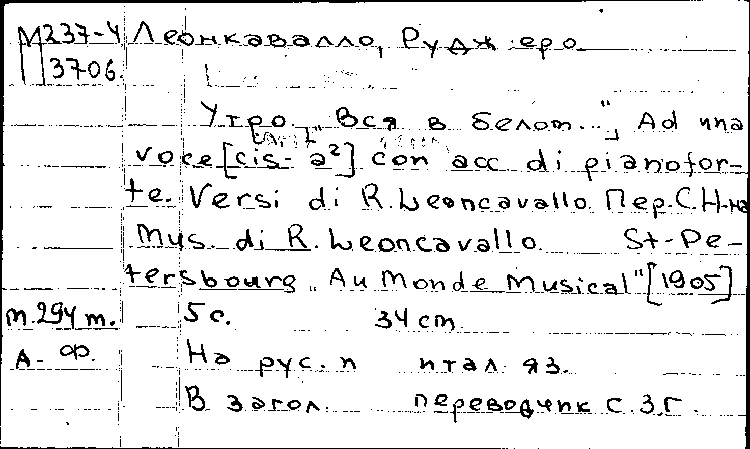 М237-4 Леонкавалло, Руджеро
3706
Утро „Вся в белом..." Ad una
voce [cis-a²] con acc di pianofor-
te. Versi di R. Leoncavallo. Пер. С. Н-на
Mus. di R. Leoncavallo St-Pe-
tersbourg „Au Monde Musical" [1905]
м.294 т. 5 с. 34 cm.
А-Ф. На рус. и итал. яз.
В загол. переводчик С. З. Г.